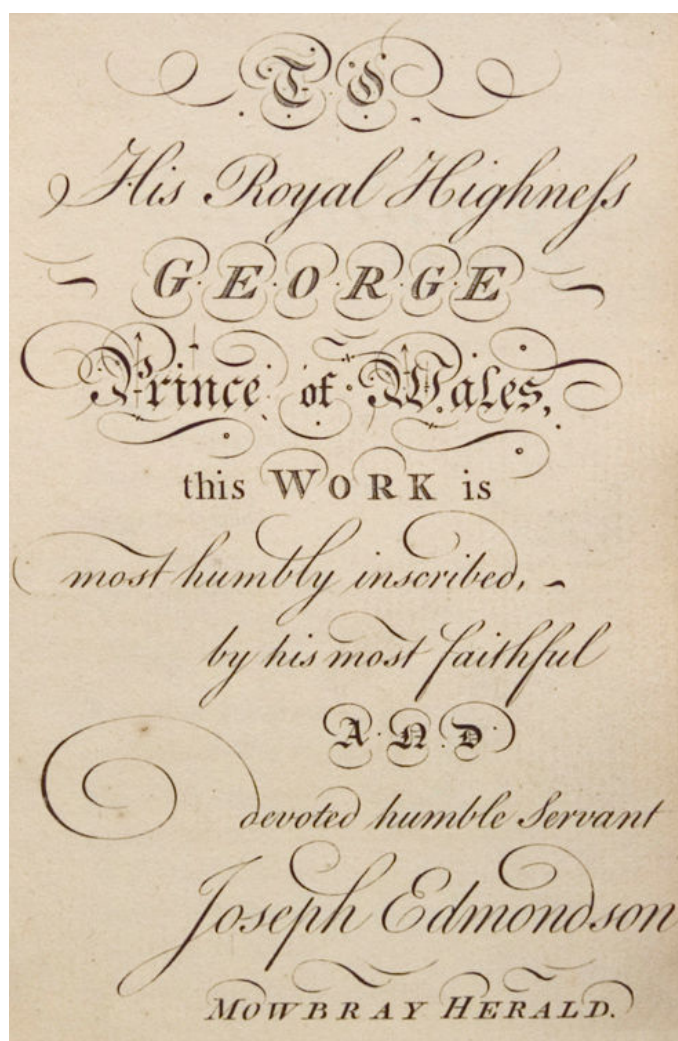 TO
His Royal Highneſs
GEORGE
Prince of Wales,
this WORK is
most humbly inscribed,
by his most faithful
AND
devoted humble Servant
Joseph Edmondson
MOWBRAY HERALD.